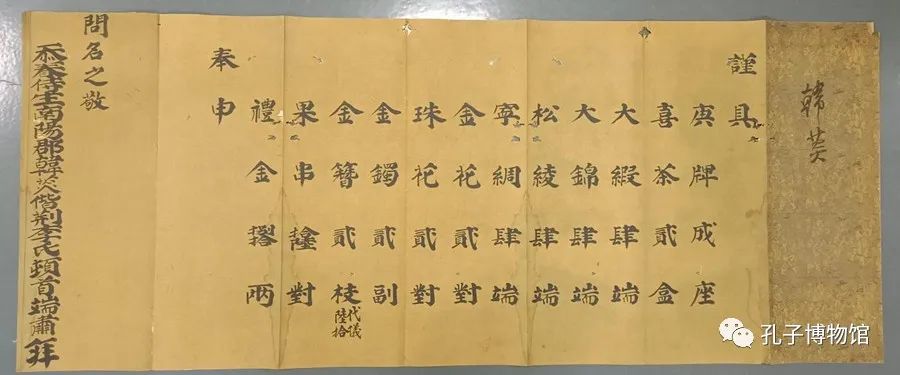 韓
謹具
庚牌成座
喜茶貳盒
大緞肆端
大錦肆端
松綾肆端
寧綢肆端
金花貳對
珠花貳對
金鐲貳副
金簪貳枝代儀陸拾
果串對
禮金兩
奉申
問名之敬
忝眷侍生南陽郡韓偕荆李氏頓首端肅拜
孔子博物馆